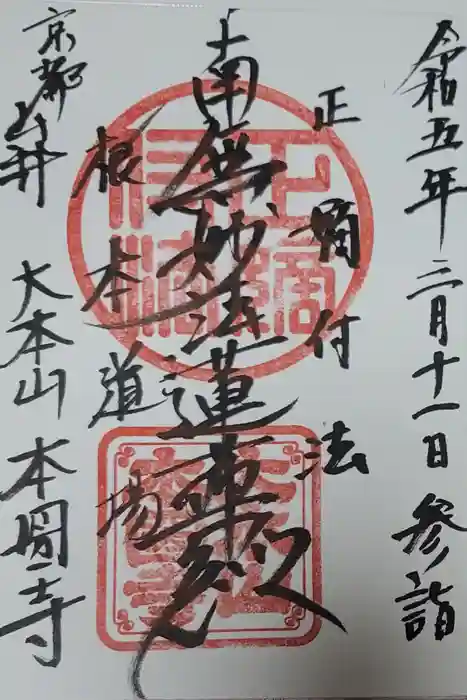 令和五年三月十一日参詣
正嫡付法
南無妙法蓮華経
根本道場
京都山科
大本山本圀寺
正嫡付法